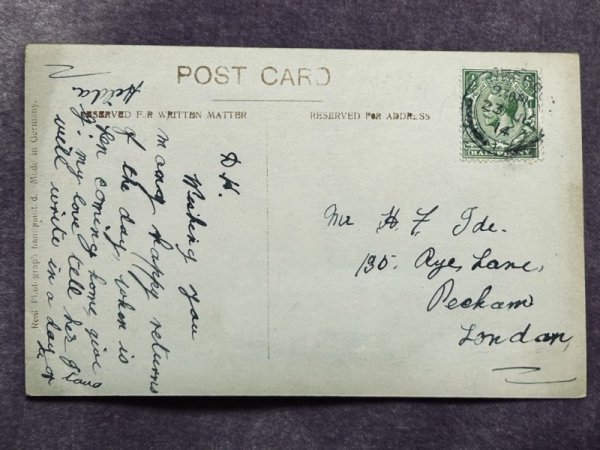 POST CARD
RESERVED F R WRITTEN MATTER
RESERVED FOR ADDRESS
HALFPENNY
23
14
D H.
Wishing you
many happy returns
of the day, when is
coming home, give
my love tell her
will write in a day or
Hilda
Mr H F Ide.
135. Rye Lane,
Pecham
London,
Real Phot-graph handpaint d. Made in Germany.